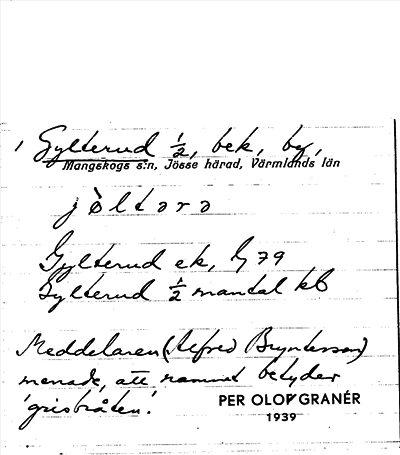 Gylterud ½, bek, by,
Mangskogs s:n, Jösse härad, Värmlands län
j ò l t ə r ə
Gylterud ek, G 79
Gylterud ½ mantal kb
Meddelaren (Alfred Bryntesson)
menade, att namnet betyder
'grisbråten'.
PER OLOF GRANÉR
1939